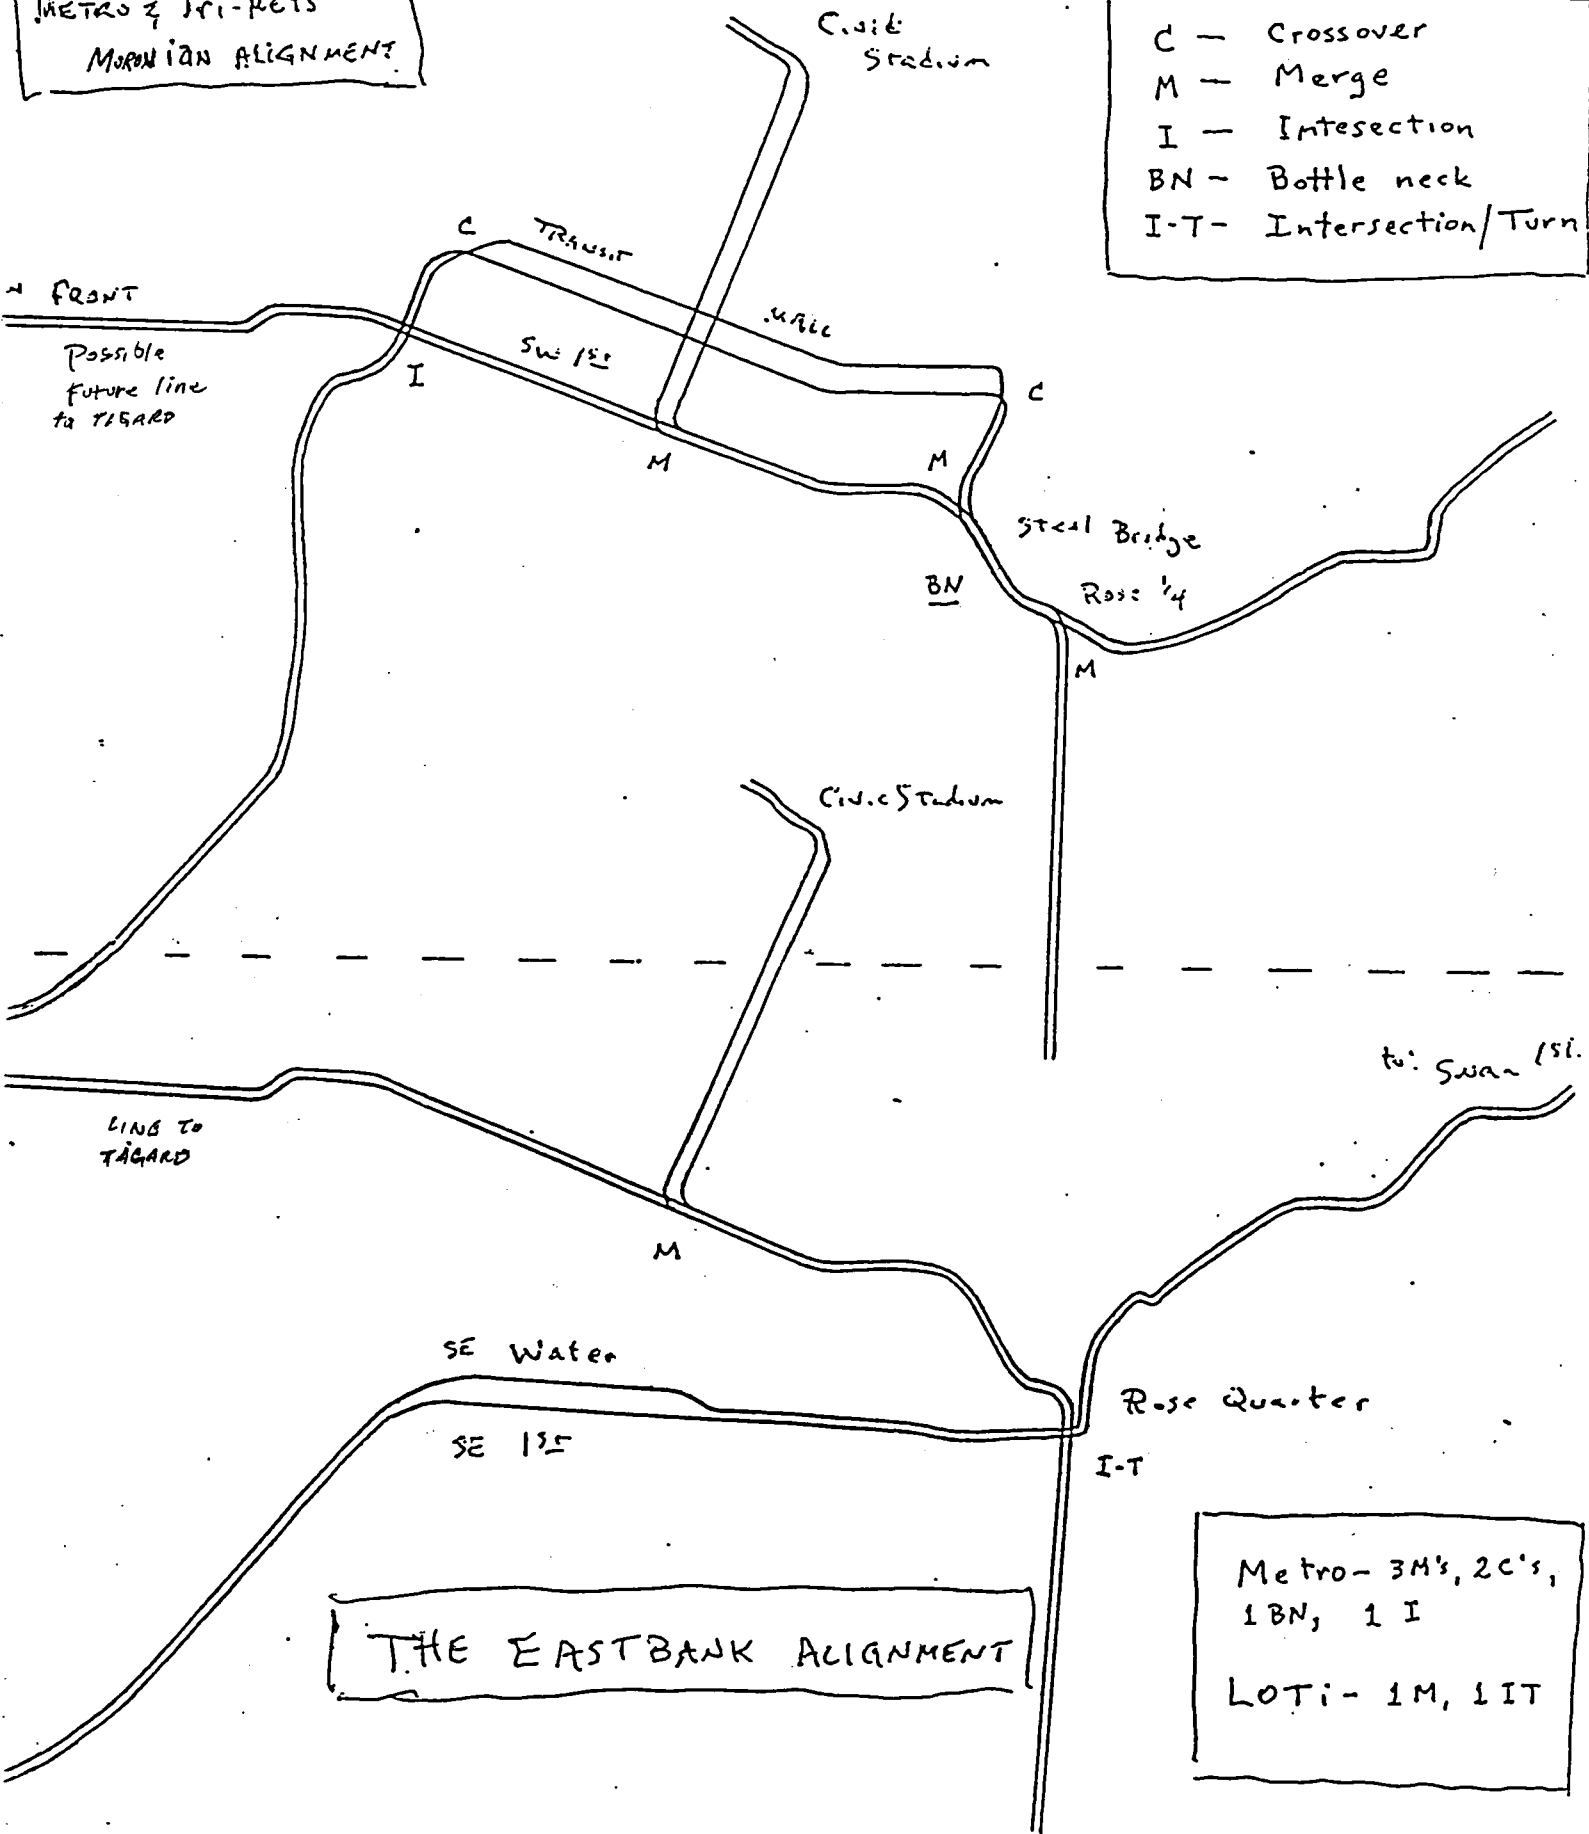 METRO & Tri-METS
MORONIAN ALIGNMENT
Civic
Stadium
C — Crossover
M — Merge
I — Intesection
BN — Bottle neck
I-T- Intersection/Turn
C
TRANSIT
MALL
FRONT
Possible
Future line
to TIGARD
I
SW 1st
M
C
M
Steel Bridge
BN
Rose 1/4
M
Civic Stadium
to: Swan Isl.
LINE TO
TAGARD
M
SE Water
SE 1st
Rose Quarter
I-T
THE EASTBANK ALIGNMENT
Metro- 3M's, 2C's,
1 BN, 1 I
LOTi- 1M, 1 IT